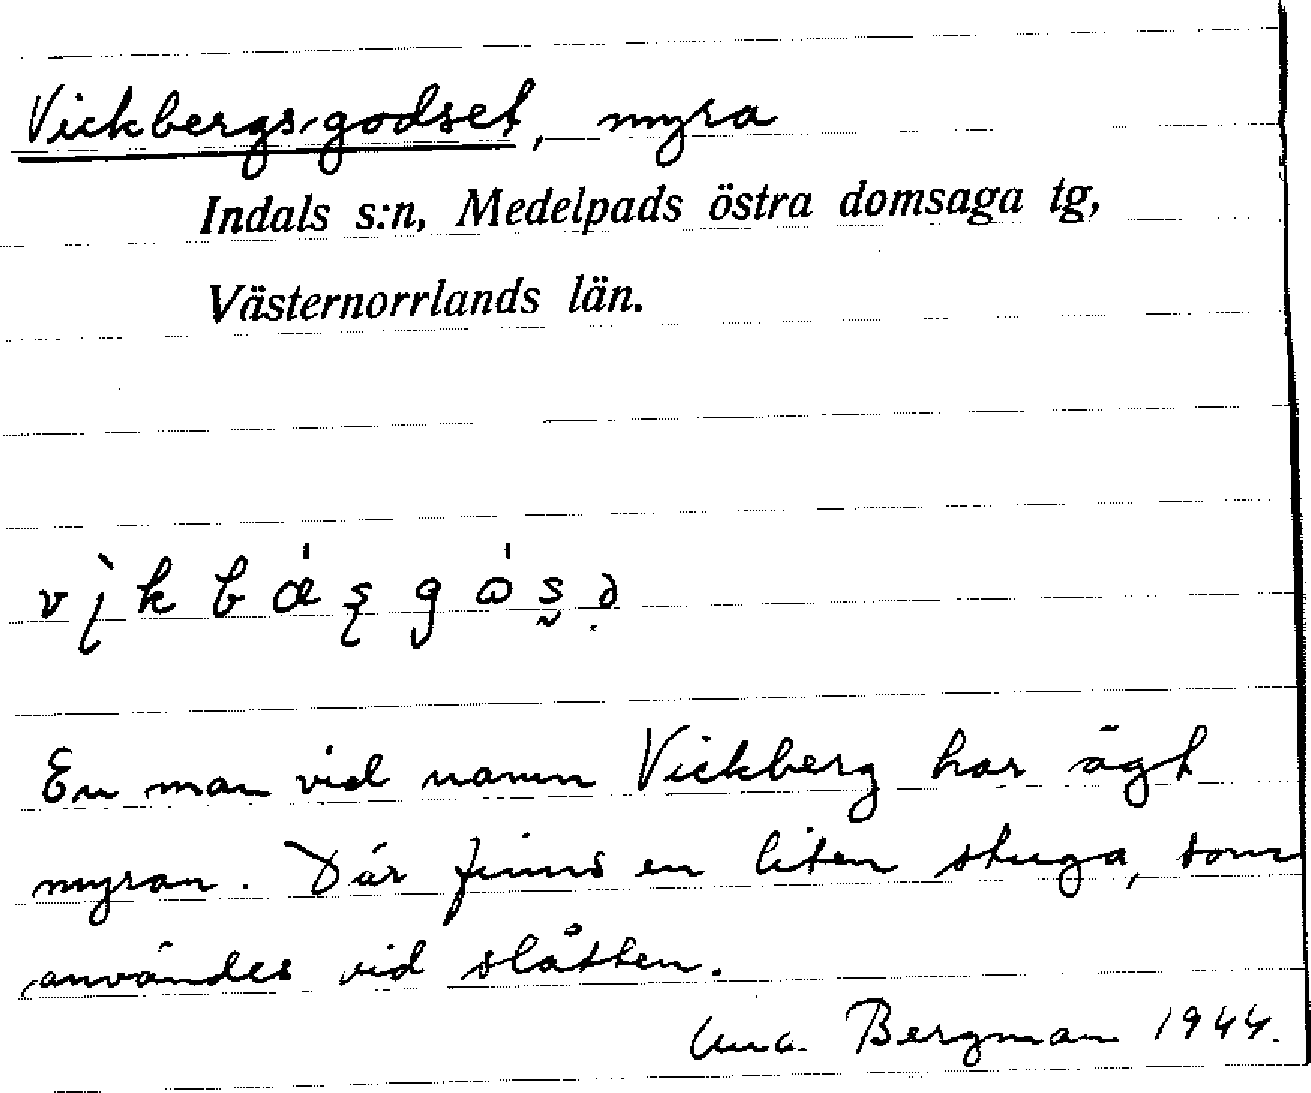 Vickbergs-godset, myra
Indals s:n, Medelpads östra domsaga tg,
Västernorrlands län.
En man vid namn Vickberg har ägt
myran. Där finns en liten stuga, som
användes vid slåtten.
Bergman 1944.